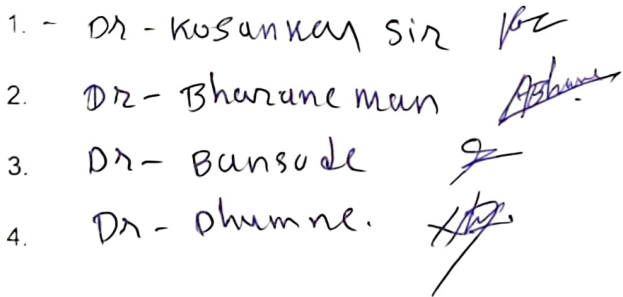 1. - Dr - Kosankar sir
2. Dr - Bharane mam
3. Dr - Bansode
4. Dr - Dhumne.